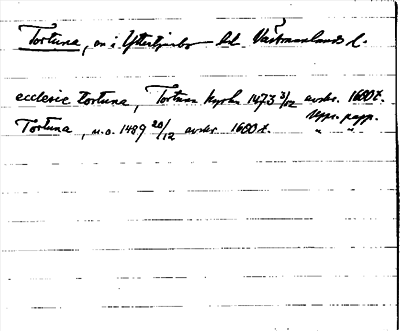 Tortuna, sn i Yttertjurbo hd. Västmanlands l.
ecclesie tortuna, Tortuna kyrka 1473 3/12 avskr. 1680 t.
Uppr. papp.
Tortuna, u.o. 1489 20/12 avskr. 1680 t. " "